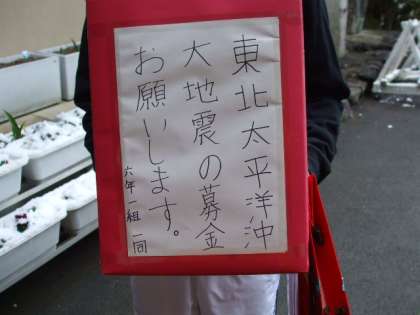 東北太平洋沖
大地震の募金
お願いします。
六年一組一同